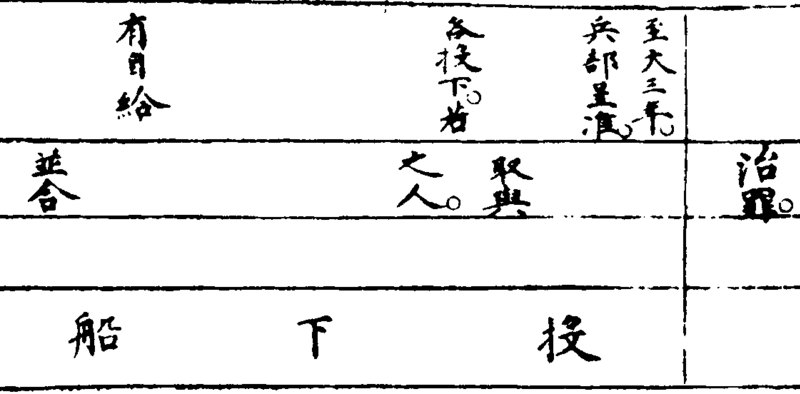 治罪。
至大三年。
兵部呈准。
各投下。若
有自給
取與
之人。
並合
投下船